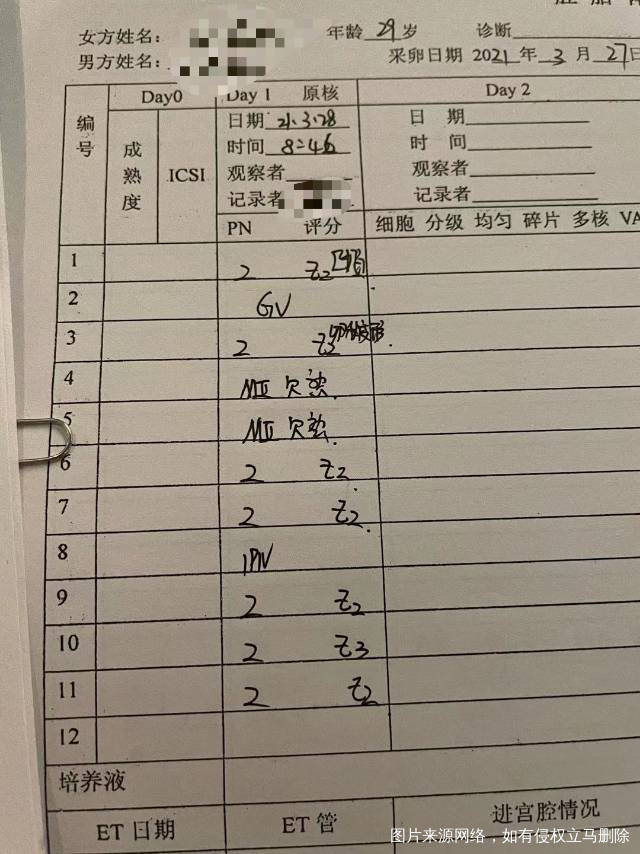 胚胎
女方姓名: 年龄 29 岁 诊断
男方姓名: 采卵日期 2021 年 3 月 27 日
编号 Day0 Day 1 原核 Day 2
成熟度 ICSI
日期 21.3.28 日 期
时间 8:46 时 间
观察者 观察者
记录者 记录者
PN 评分 细胞 分级 均匀 碎片 多核 VA
1 2 Z2
2 GV
3 2 Z3
4 MII 欠熟.
5 MII 欠熟.
6 2 Z2.
7 2 Z2.
8 1PN
9 2 Z2
10 2 Z3
11 2 Z2
12
培养液
ET 日期 ET 管 进宫腔情况
图片来源网络，如有侵权立马删除